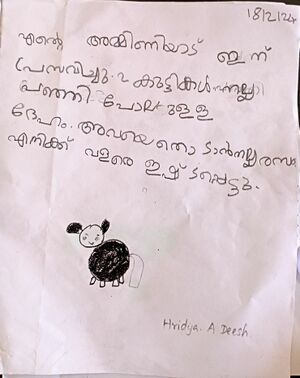 18/2/24
എന്റെ അമ്മിണിയാട് ഇന്ന്
പ്രസവിച്ചു. 2 കുട്ടികൾ നല്ല
പഞ്ഞി പോലുള്ള
ദേഹം. അവയെ തൊടാൻ നല്ല രസം
എനിക്ക് വളരെ ഇഷ്ടപ്പെട്ടു.
Hridya. A Deesh